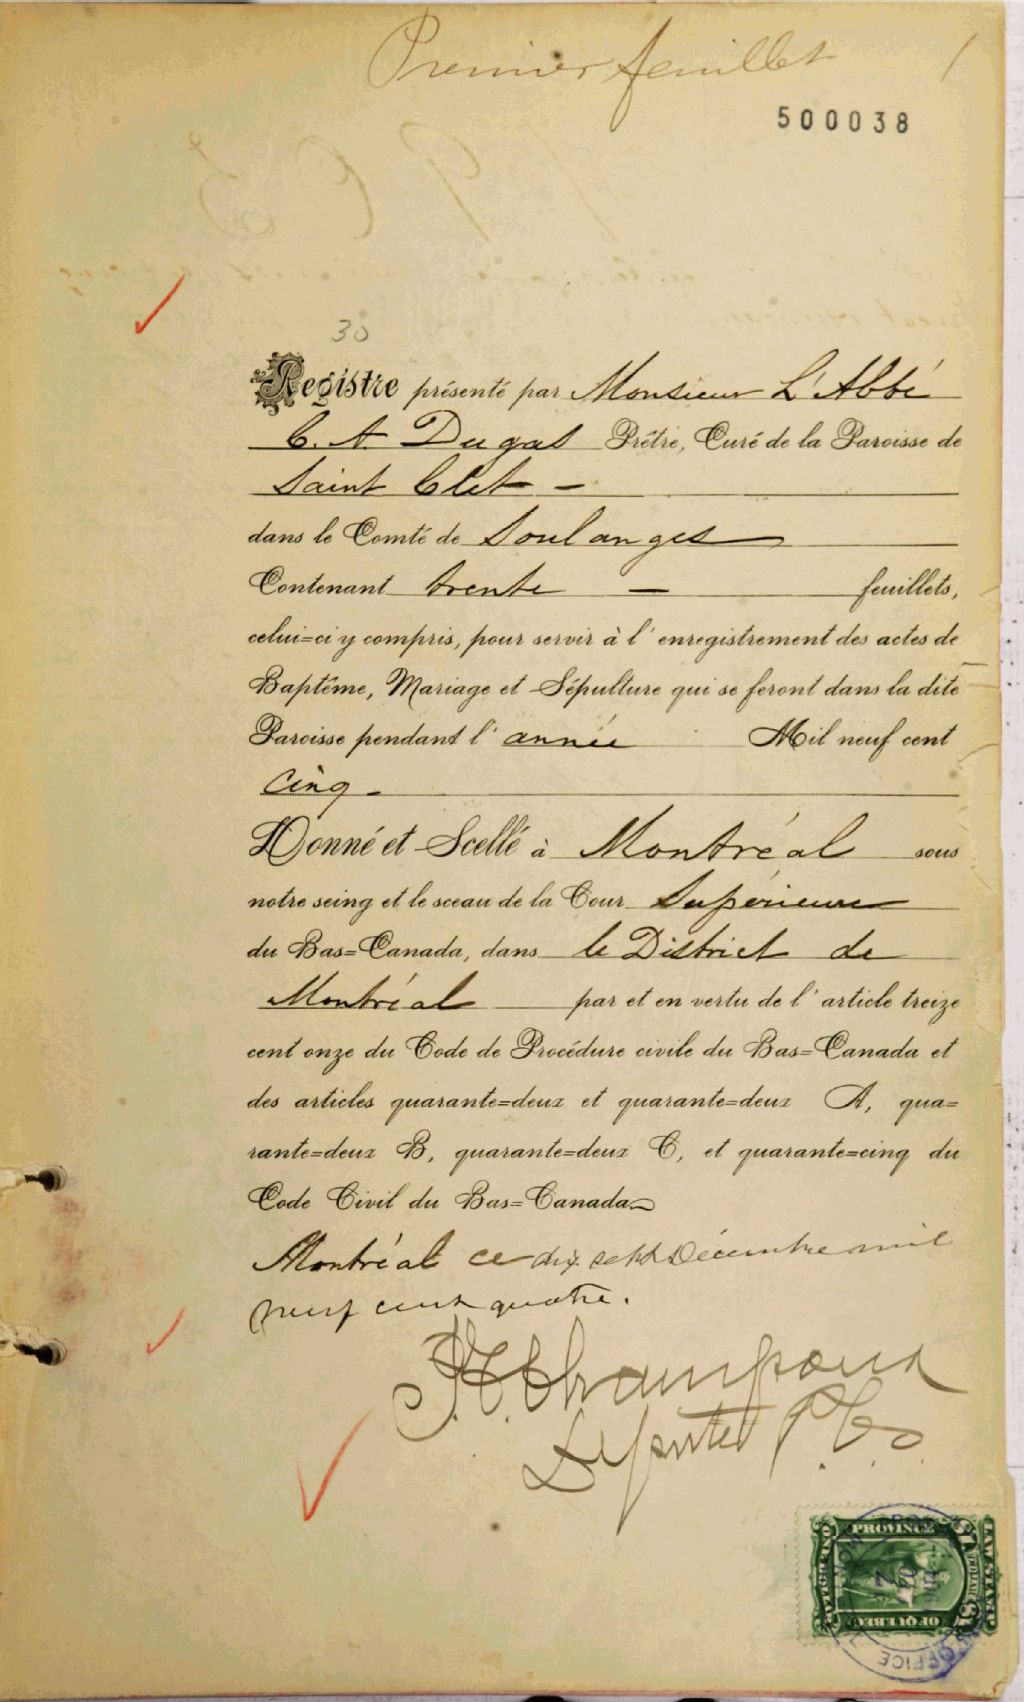 Premier feuillet 1
500038
30
Registre présenté par Monsieur L'Abbé
C. A Dugas Prêtre, Curé de la Paroisse de
Saint Clet -
dans le Comté de Soulanges
Contenant trente - feuillets,
celui=ci y compris, pour servir à l'enregistrement des actes de
Baptême, Mariage et Sépulture qui se feront dans la dite
Paroisse pendant l'année Mil neuf cent
cinq -
Donné et Scellé à Montréal sous
notre seing et le sceau de la Cour Supérieure
du Bas=Canada, dans le District de
Montréal par et en vertu de l'article treize
cent onze du Code de Procédure civile du Bas=Canada et
des articles quarante=deux et quarante=deux A, qua=
rante=deux B, quarante=deux C, et quarante=cinq du
Code Civil du Bas=Canada
Montréal ce dix sept Décembre mil
neuf cent quatre.
Champoux
Député P.C.S
PROVINCE
OF QUEBEC
LAW STAMP
OFFICE